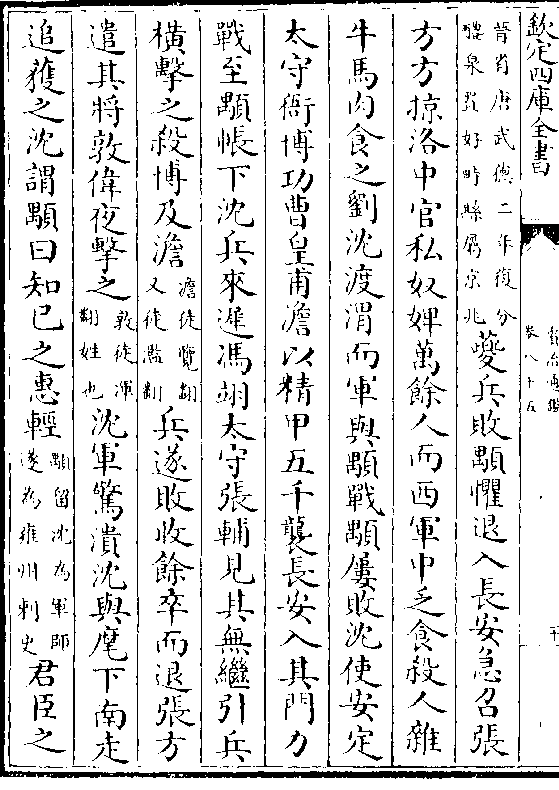 欽定四庫全書
晉省唐武德二年復分
醴泉置好畤縣屬京兆
夔兵敗顒懼退入長安急召張
方方掠洛中官私奴婢萬餘人而西軍中乏食殺人雜
牛馬肉食之劉沈渡渭而軍與顒戰顒屢敗沈使安定
太守衙博功曹皇甫澹以精甲五千襲長安入其門力
戰至顒帳下沈兵來遲馮翊太守張輔見其無繼引兵
橫擊之殺博及澹
澹徒覽翻
又徒濫翻
兵遂敗收餘卒而退張方
遣其將敦偉夜擊之
敦徒渾
翻姓也
沈軍驚潰沈與麾下南走
追獲之沈謂顒曰知己之惠輕
顒留沈為軍師
遂為雍州刺史
君臣之
資治通鑑
卷八十五